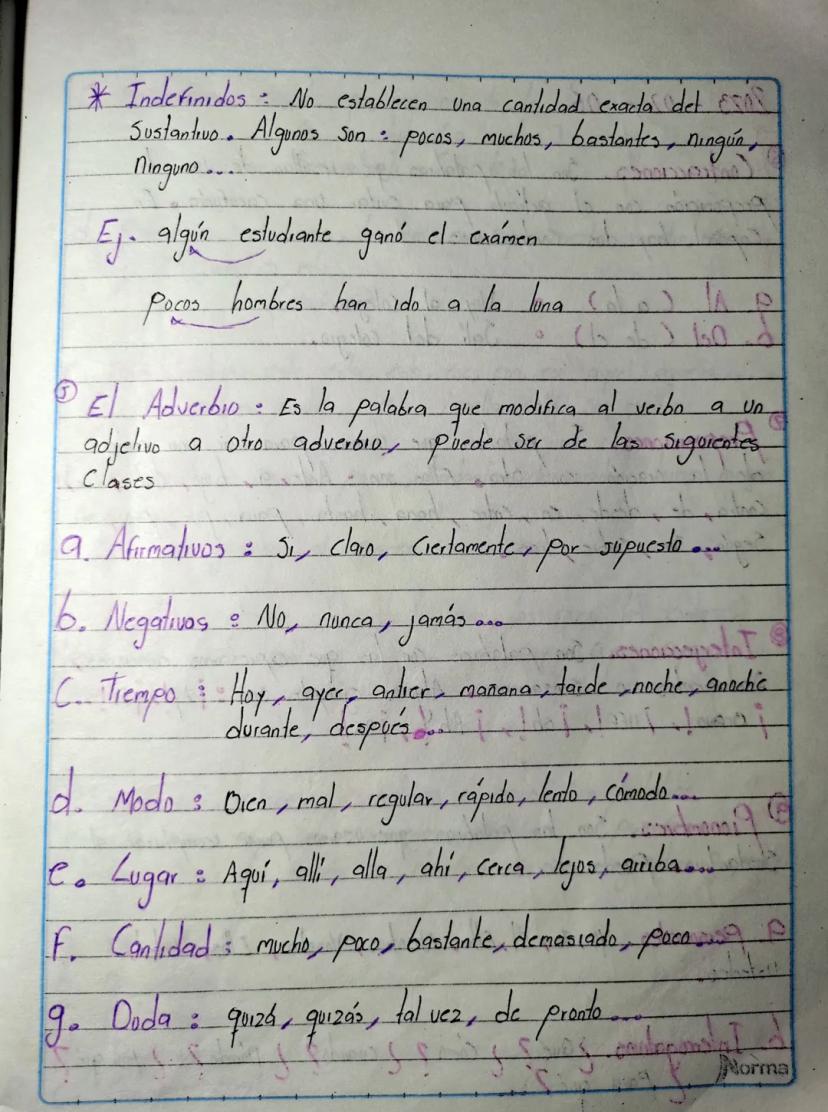 * Indefinidos : No establecen una cantidad exacta del
sustantivo. Algunos son : pocos, muchos, bastantes, ningún,
ninguno...
Ej. algún estudiante ganó el exámen
Pocos hombres han ido a la luna
5 El Adverbio : Es la palabra que modifica al verbo a un
adjetivo a otro adverbio, puede ser de las siguientes
clases
a. Afirmativos : Si, claro, ciertamente, por supuesto...
b. Negativos : No, nunca, jamás...
C. Tiempo : Hoy, ayer, antier, mañana, tarde, noche, anoche
durante, después...
d. Modo : Bien, mal, regular, rápido, lento, cómodo...
e. Lugar : Aquí, allí, alla, ahí, cerca, lejos, arriba...
f. Cantidad : mucho, poco, bastante, demasiado, poco...
g. Duda : quizá, quizás, tal vez, de pronto...
Norma